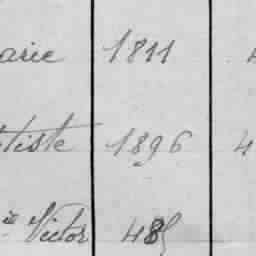 arie 1811 4
tiste 1896 4
ie Victor 485